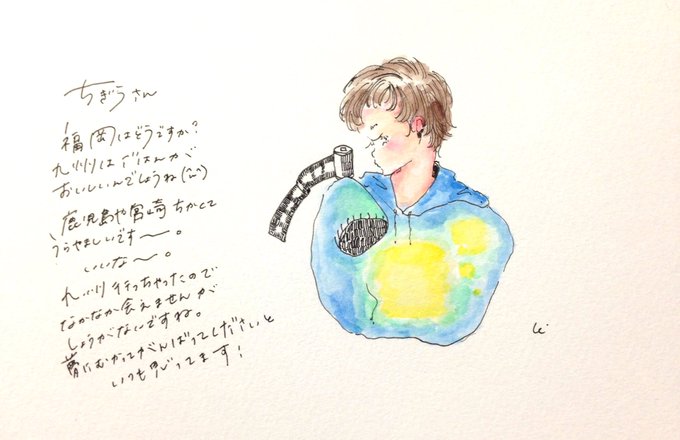 ちぎらさん
福岡はどうですか?
九州はごはんが
おいしいんでしょうね(^^)
鹿児島や宮崎ちかくて
うらやましいです〜。
いいな〜。
九州行っちゃったので
なかなか会えませんが
しょうがないですね。
夢にむかってがんばってくださいと
いつも思ってます!